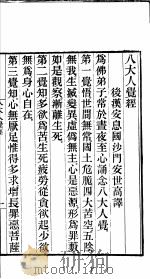 八大人覺經
後漢安息國沙門安世高譯
爲佛弟子常於晝夜至心誦念八大人覺
第一覺悟世間無常國土危脆四大苦空五陰
無我生滅變異虛僞無主心是惡源形爲罪藪
如是觀察漸離生死
第二覺知多欲爲苦生死疲勞從貪欲起少欲
無爲身心自在
第三覺知心無厭足惟得多求增長罪惡菩薩